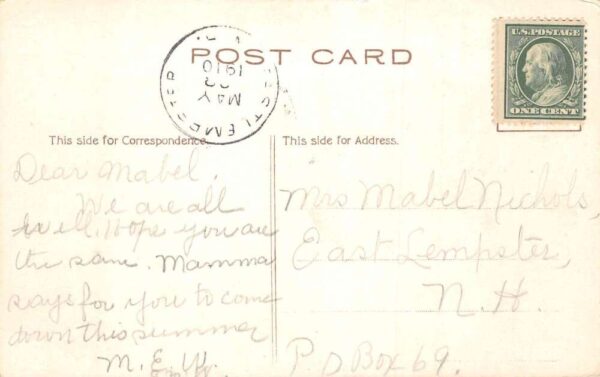 POST CARD
U.S. POSTAGE
ONE CENT
EAST LEMPSTER
MAY
1910
This side for Correspondence.
This side for Address.
Dear Mabel.
We are all
well. Hope you are
the same. Mamma
says for you to come
down this summer
M. E. W.
Mrs Mabel Nichols,
East Lempster,
N.H.
P O Box 69.